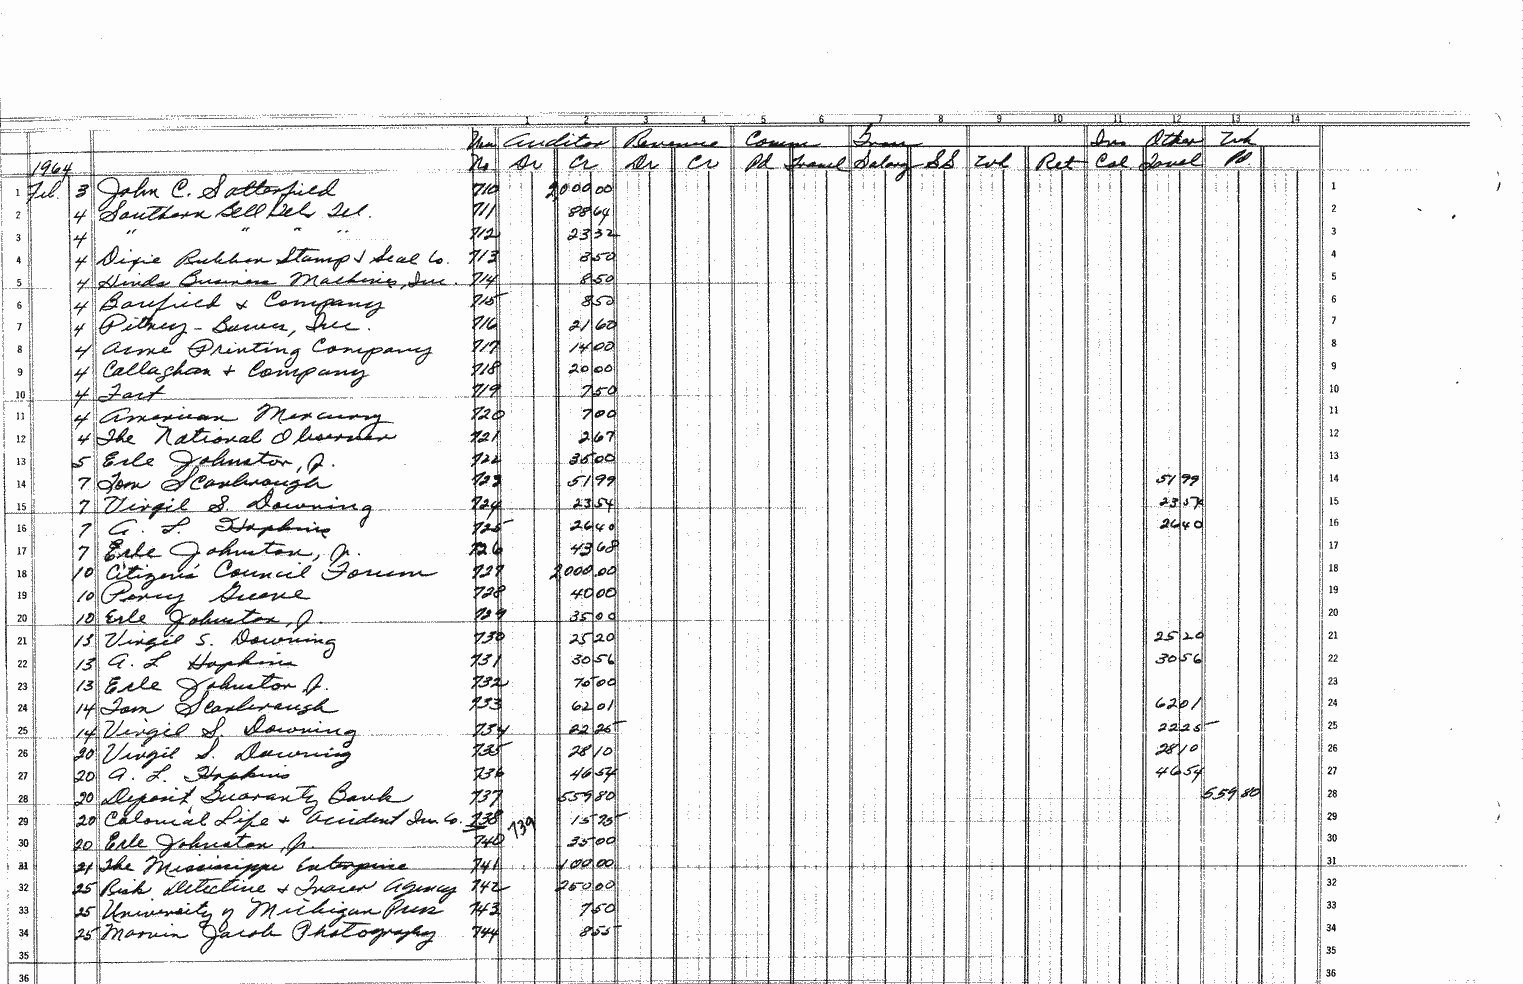 1 2 3 4 5 6 7 8 9 10 11 12 13 14
Auditor Revenue Comm Inv Other Wh
1964 No Dr Cr Dr Cr Pd Travel Salary SS Wh Ret Cal Travel Pd
1 Feb. 3 John C. Satterfield 710 2,000 00 1
2 4 Southern Bell Tel. 711 88 64 2
3 4 " " " " 712 23 32 3
4 4 Dixie Rubber Stamp & Seal Co. 713 8 50 4
5 4 Hinds Business Machines, Inc. 714 8 50 5
6 4 Barefield & Company 715 8 50 6
7 4 Pitney-Bowes, Inc. 716 21 60 7
8 4 Acme Printing Company 717 14 00 8
9 4 Callaghan & Company 718 20 00 9
10 4 719 7 50 10
11 4 American Mercury 720 7 00 11
12 4 The National Observer 721 2 67 12
13 5 Erle Johnston, Jr. 722 35 00 13
14 7 Tom Scarbrough 723 51 99 51 99 14
15 7 Virgil S. Downing 724 23 54 23 54 15
16 7 A. L. Hopkins 725 26 40 26 40 16
17 7 Erle Johnston, Jr. 726 43 68 17
18 10 Citizens' Council Forum 727 2000.00 18
19 10 Percy Greene 728 40 00 19
20 10 Erle Johnston, Jr. 729 35 00 20
21 13 Virgil S. Downing 730 25 20 25 20 21
22 13 A. L. Hopkins 731 30 56 30 56 22
23 13 Erle Johnston Jr. 732 70 00 23
24 14 Tom Scarbrough 733 62 01 62 01 24
25 14 Virgil S. Downing 734 22 25 22 25 25
26 20 Virgil S. Downing 735 28 10 28 10 26
27 20 A. L. Hopkins 736 46 54 46 54 27
28 20 Deposit Guaranty Bank 737 559 80 559 80 28
29 20 Colonial Life & Accident Ins. Co. 738 739 15 75 29
30 20 Erle Johnston, Jr. 740 35 00 30
31 21 The Mississippi Enterprise 741 100 00 31
32 25 Detective & Tracer Agency 742 250 00 32
33 25 University of Michigan Press 743 7 50 33
34 25 Marvin Jacob Photography 744 8 55 34
35 35
36 36